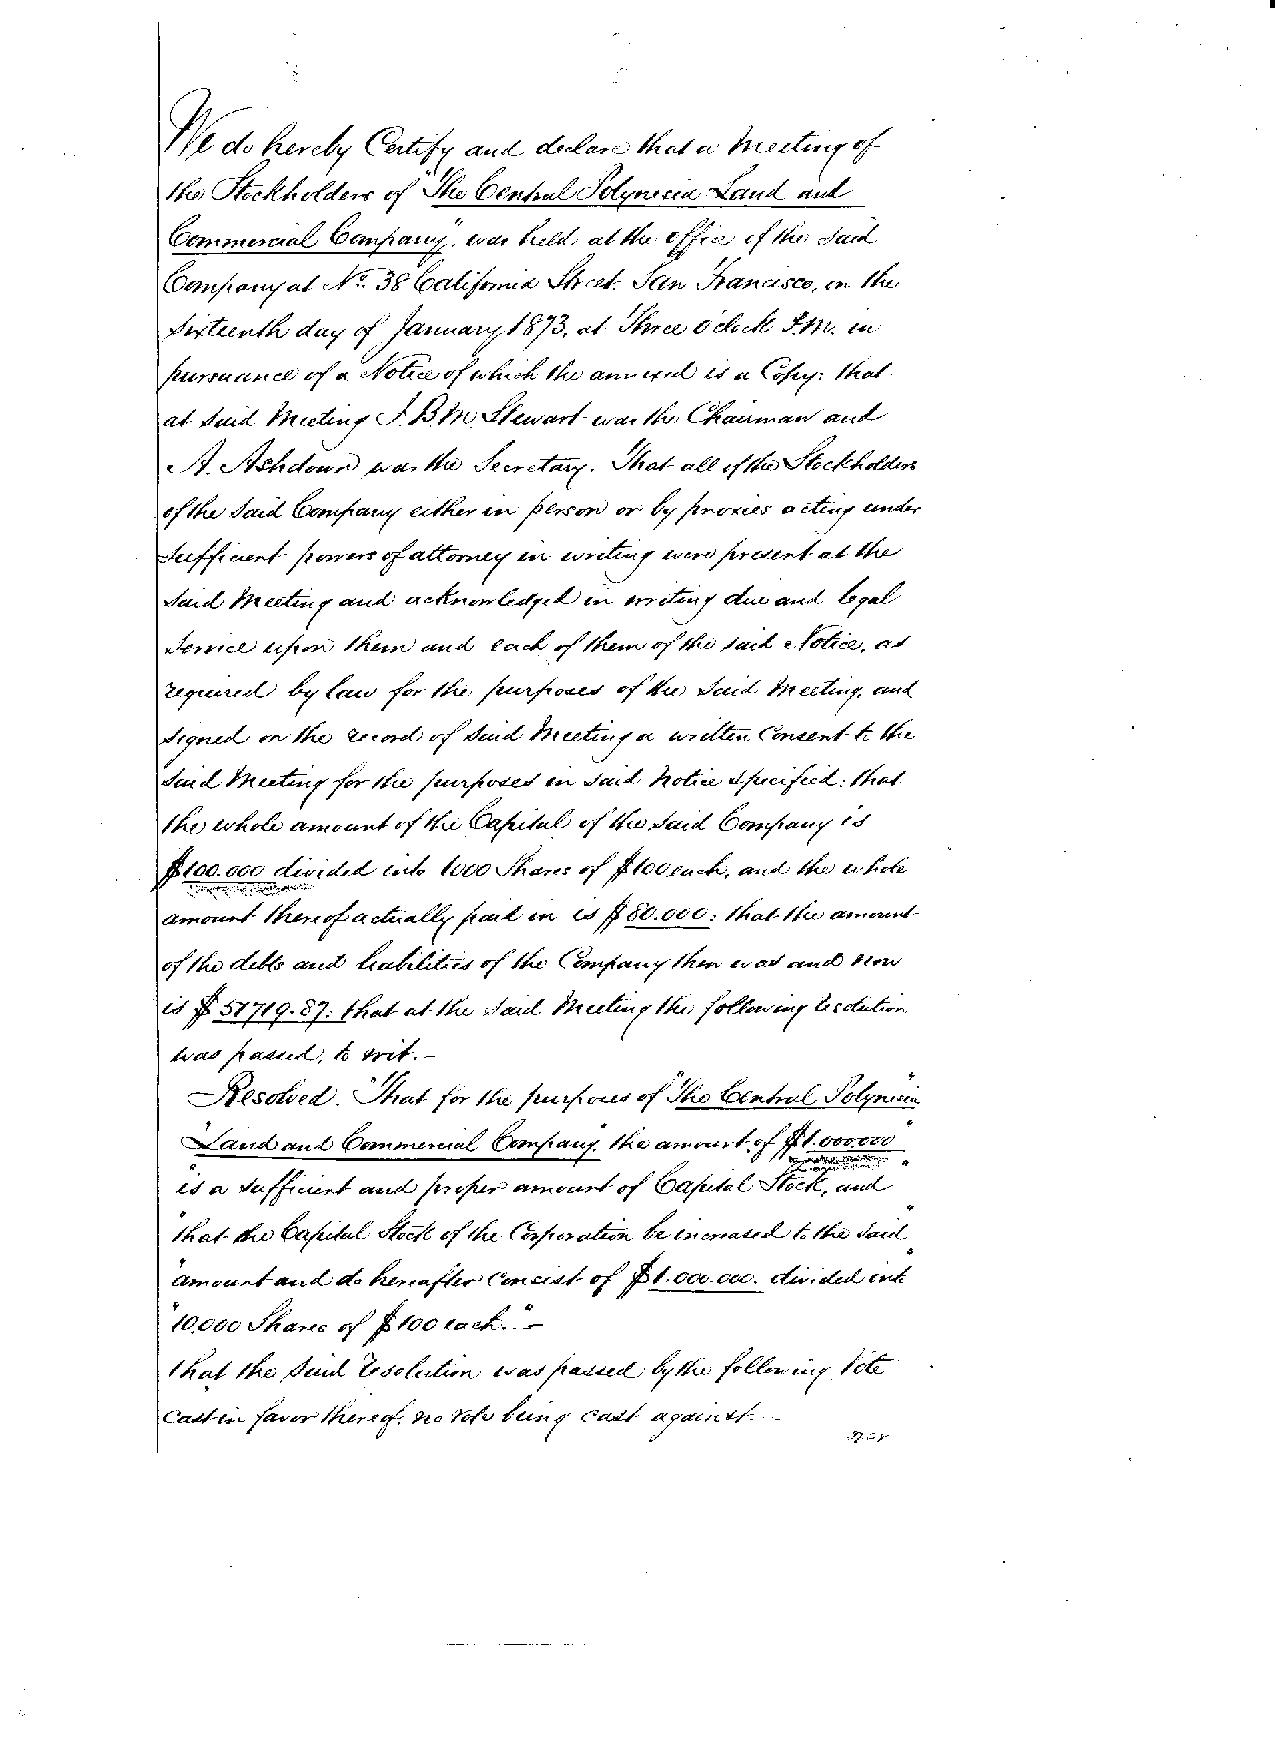 We do hereby Certify and declare that a Meeting of
the Stockholders of "The Central Polynesia Land and
Commercial Company", was held at the office of the Said
Company at No. 38 California Street San Francisco, on the
Sixteenth day of January 1873, at Three o'clock P.M. in
pursuance of a Notice of which the annexed is a Copy: that
at Said Meeting J.B.M. Stewart was the Chairman and
A. Ashdown was the Secretary. That all of the Stockholders
of the Said Company either in person or by proxies acting under
Sufficient powers of attorney in writing were present at the
Said Meeting and acknowledged in writing due and legal
Service upon them and each of them of the said Notice, as
required by law for the purposes of the Said Meeting, and
signed on the record of Said Meeting a written Consent to the
Said Meeting for the purposes in said Notice specified: that
the whole amount of the Capital of the Said Company is
$100.000 divided into 1000 Shares of $100 each, and the whole
amount thereof actually paid in is $80.000: that the amount
of the debts and liabilities of the Company then was and now
is $51719.87: that at the Said Meeting the following resolution
was passed, to wit.-
Resolved. "That for the purposes of "The Central Polynesia"
"Land and Commercial Company" the amount of $1.000.000"
"is a sufficient and proper amount of Capital Stock, and"
"that the Capital Stock of the Corporation be increased to the said"
"amount and do hereafter Consist of $1.000.000. divided into"
"10,000 Shares of $100 each."-
that the Said resolution was passed by the following Vote
Cast in favor thereof; no Vote being cast against.-